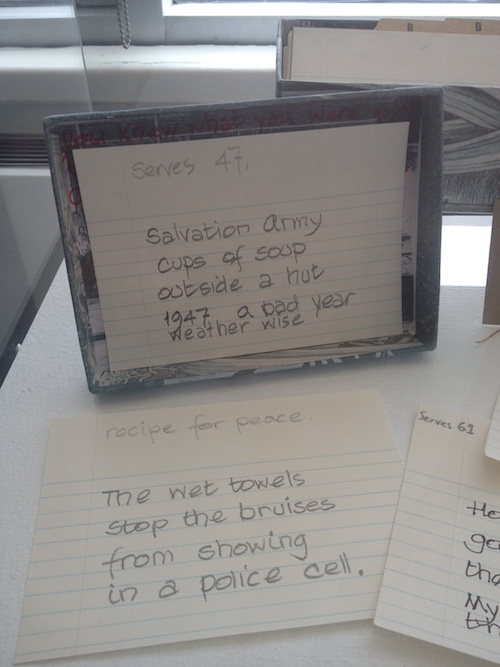 B
B
you knew what you were
Serves 47.
Salvation Army
cups of soup
outside a hut
1947 a bad year
weather wise
recipe for peace.
The wet towels
stop the bruises
from showing
in a police cell.
Serves 61
He
go
tha
My